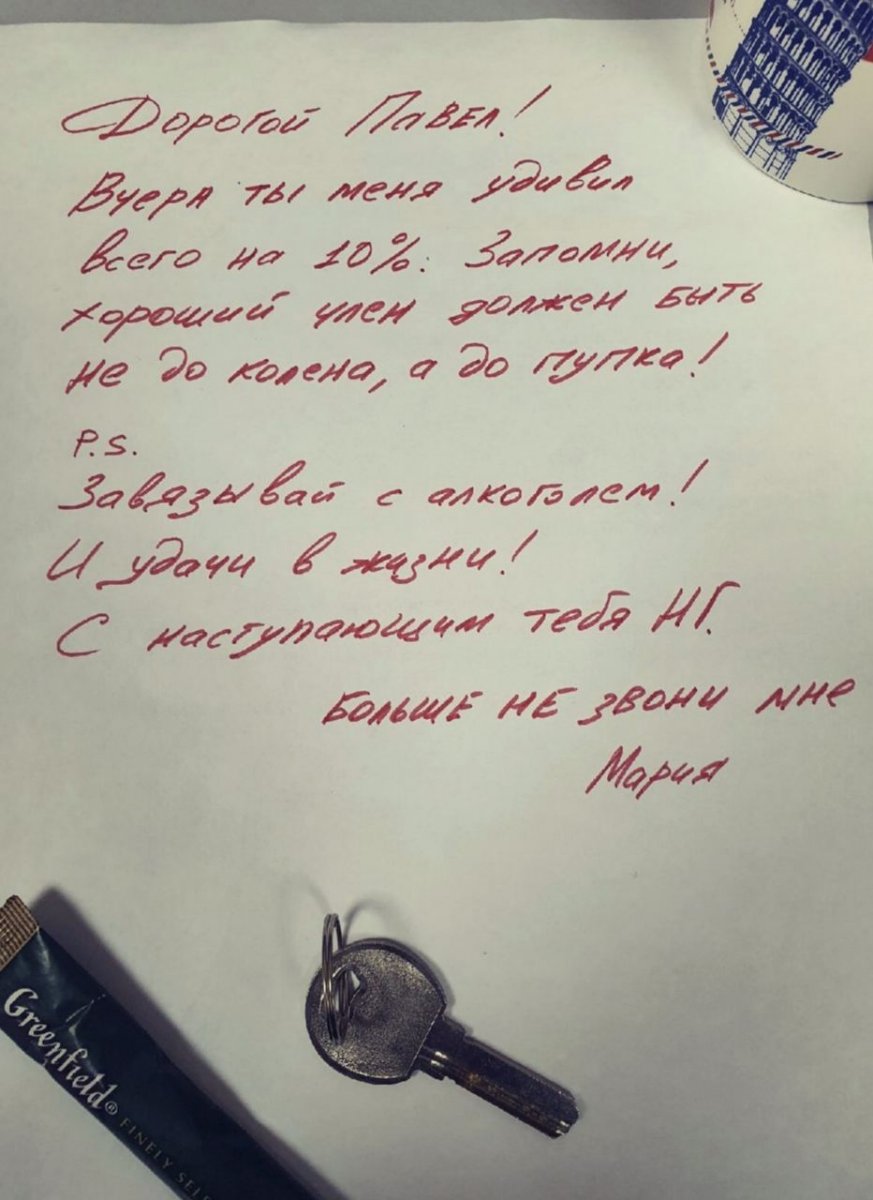 Дорогой Павел!
Вчера ты меня удивил
всего на 10%. Запомни,
хороший член должен быть
не до колена, а до пупка!
P.S.
Завязывай с алкоголем!
И удачи в жизни!
С наступающим тебя НГ.
Больше не звони мне
Мария
Greenfield®
FINELY SELE